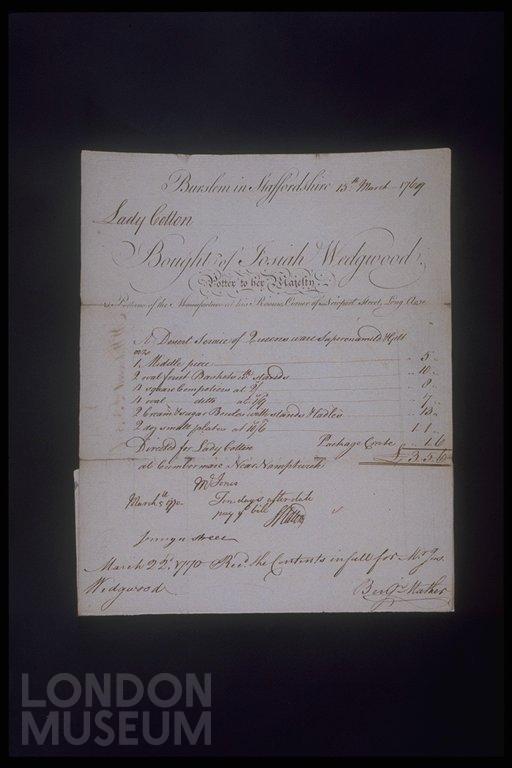 Burslem in Staffordshire 15th March 1769
Lady Cotton
Bought of Josiah Wedgwood
Potter to her Majesty.
Patterns of the Manufacture at his Rooms, Corner of Newport Street, Long Acre
A Desert Service of Queens ware Super enameld & Gilt
1 Middle piece 5
2 oval fruit Baskets wth stands 10
4 square Compotiers at 2/ 8
4 oval ditto at 7
2 Cream & sugar Bowles with stands & Ladles 13
2 doz small plates at 1 1
Directed for Lady Cotton Package Crate 1 6
£ 3 5 6
at Cumbermere Near Namptwich
Mr Jones
March 5th 1770 Ten days after date
pay ys bill
Jermyn street
March 22d 1770 Recd. the Contents in full for Mr Jos.
Wedgwood Benjn Mather
LONDON
MUSEUM